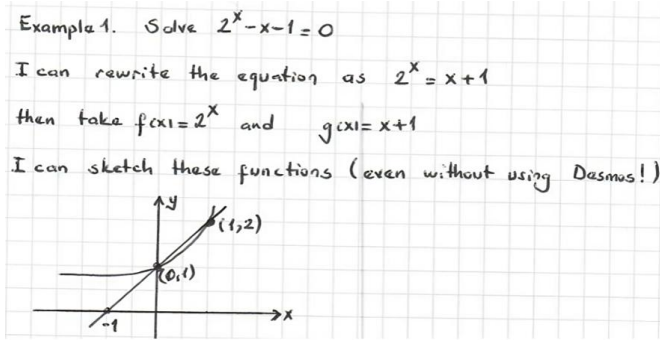 Example 1. Solve 2ˣ-x-1=0
I can rewrite the equation as 2ˣ = x+1
then take f(x)=2ˣ and g(x)= x+1
I can sketch these functions (even without using Desmos!)
y
(1,2)
(0,1)
x
-1